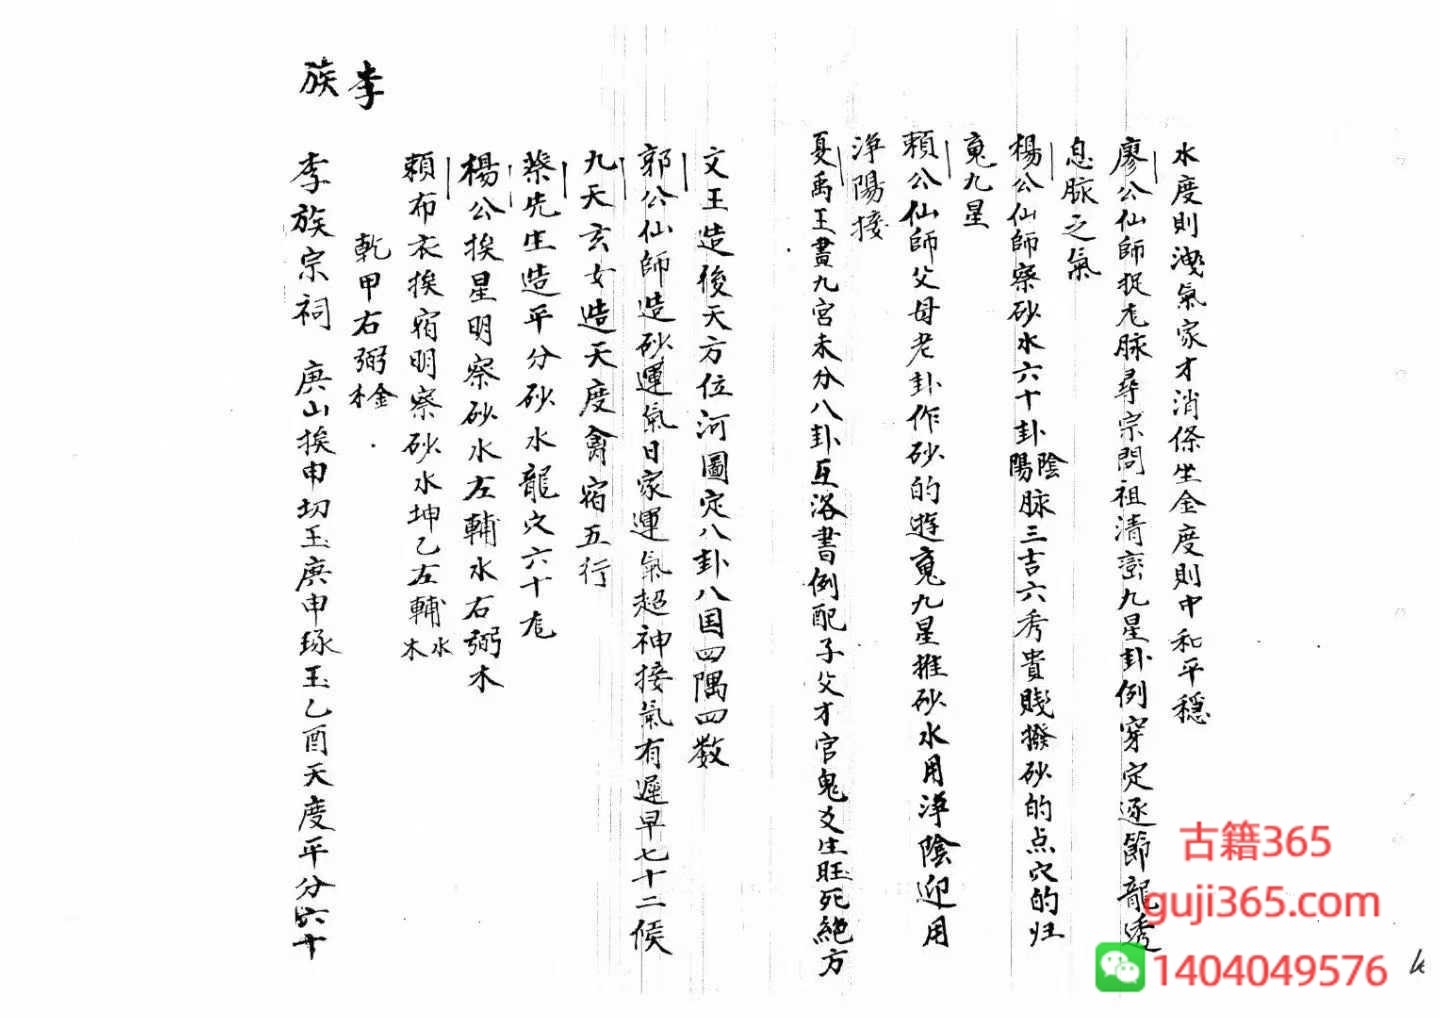 水度則洩氣家才消條坐金度則中和平穩
廖公仙師捉龙脉尋宗問祖清巒九星卦例穿定逐節龍透
息脉之氣
楊公仙師察砂水六十卦陰陽脉三吉六秀貴賤撥砂的点穴的归
寬九星
賴公仙師父母老卦作砂的遊寬九星推砂水用淨陰迎用
淨陽接
夏禹王畫九宮未分八卦互洛書例配子父才官鬼爻生旺死絕方
文王造後天方位河圖定八卦八国四隅四数
郭公仙師造砂運氣日家運氣超神接氣有遲早七十二候
九天玄女造天度禽宿五行
蔡先生造平分砂水龍穴六十龙
楊公挨星明察砂水左輔水右弼木
賴布衣挨宿明察砂水坤乙左輔水木
乾甲右弼金木
李族
李族宗祠 庚山挨申切玉庚申琢玉乙酉天度平分六十
古籍365
guji365.com
1404049576